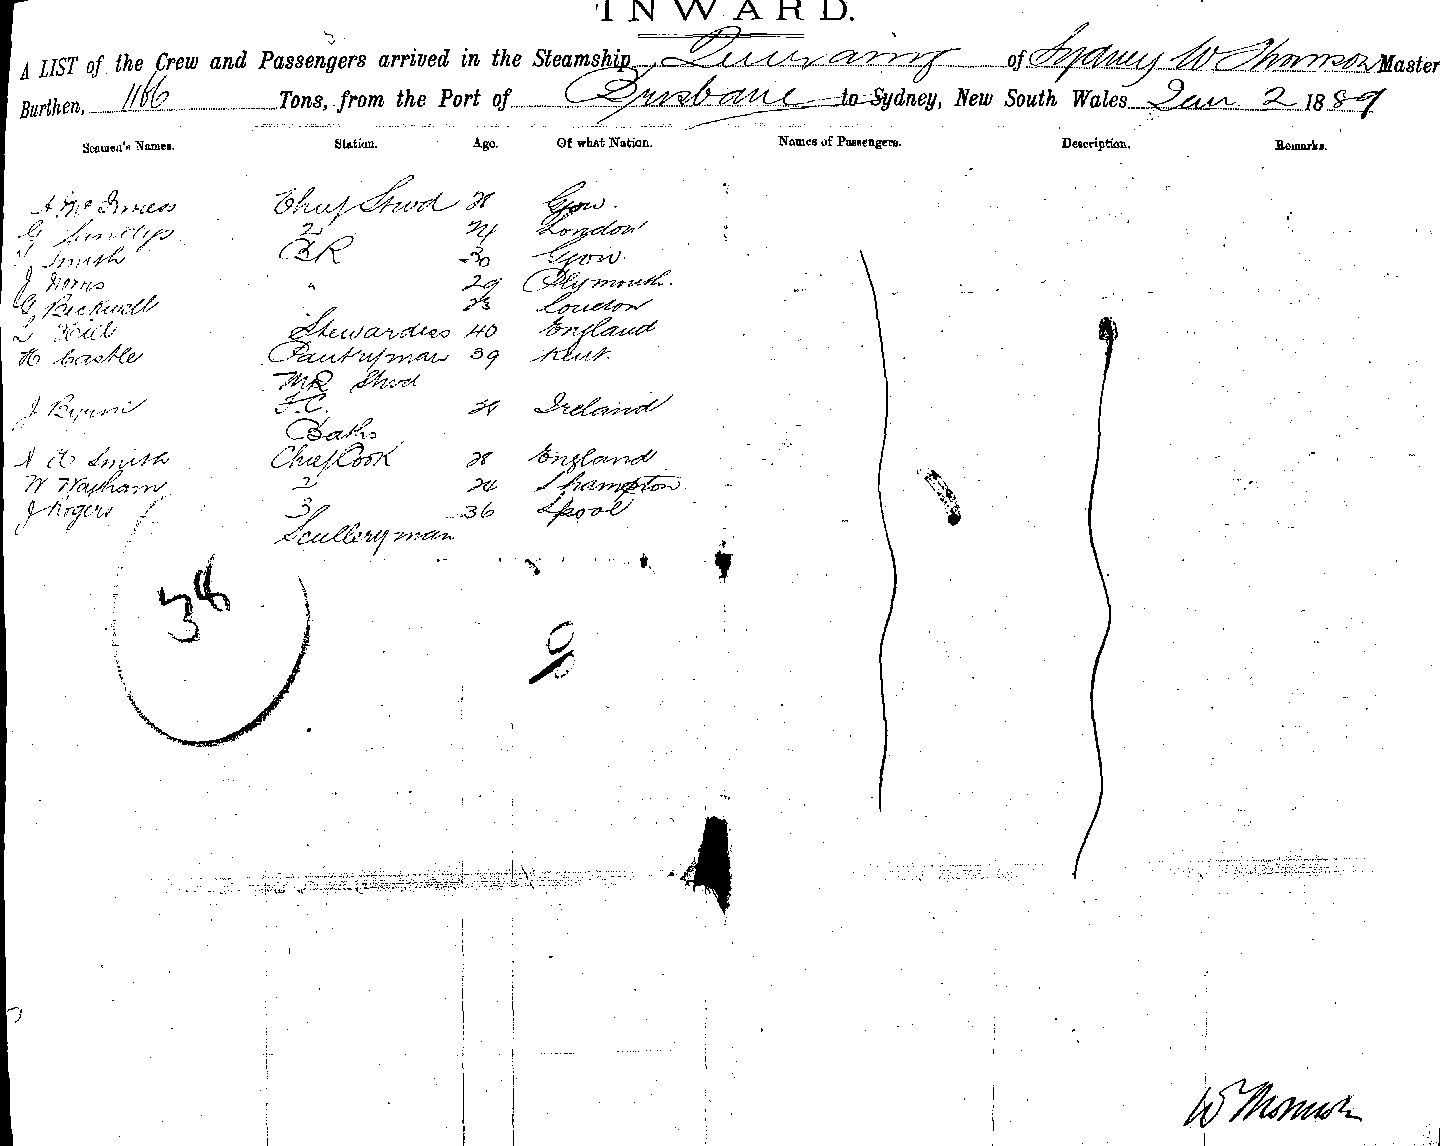 INWARD.
A LIST of the Crew and Passengers arrived in the Steamship of Sydney W Thomson Master
Burthen, 1166 Tons, from the Port of Brisbane to Sydney, New South Wales Jan 2 1889
Seamen's Names. Station. Age. Of what Nation. Names of Passengers. Description. Remarks.
A McInness Chief Stwd 28 Gow.
G 2 24 London
Smith BR 30 Gow.
J Norris " 29 Plymouth.
G Bicknell 23 London
Hill Stewardess 40 England
H Castle Pantryman 39 Kent.
MR Stwd
J Byrne F.C. Ireland
Baths
A Smith Chief Cook 28 England
W 2 24 Shampton
J Rogers 3 36 Lpool
Sculleryman
38